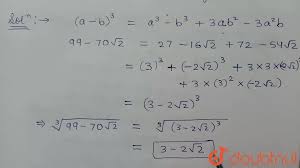 Solⁿ :→ (a-b)³ = a³-b³ + 3ab² - 3a²b
99-70√2 = 27-16√2 + 72-54√2
= (3)³ + (-2√2)³ + 3×3×(2√2)²
+ 3×(3)²×(-2√2).
= (3-2√2)³
⇒ ∛99-70√2 = ∛(3-2√2)³
= 3-2√2
doubtnut